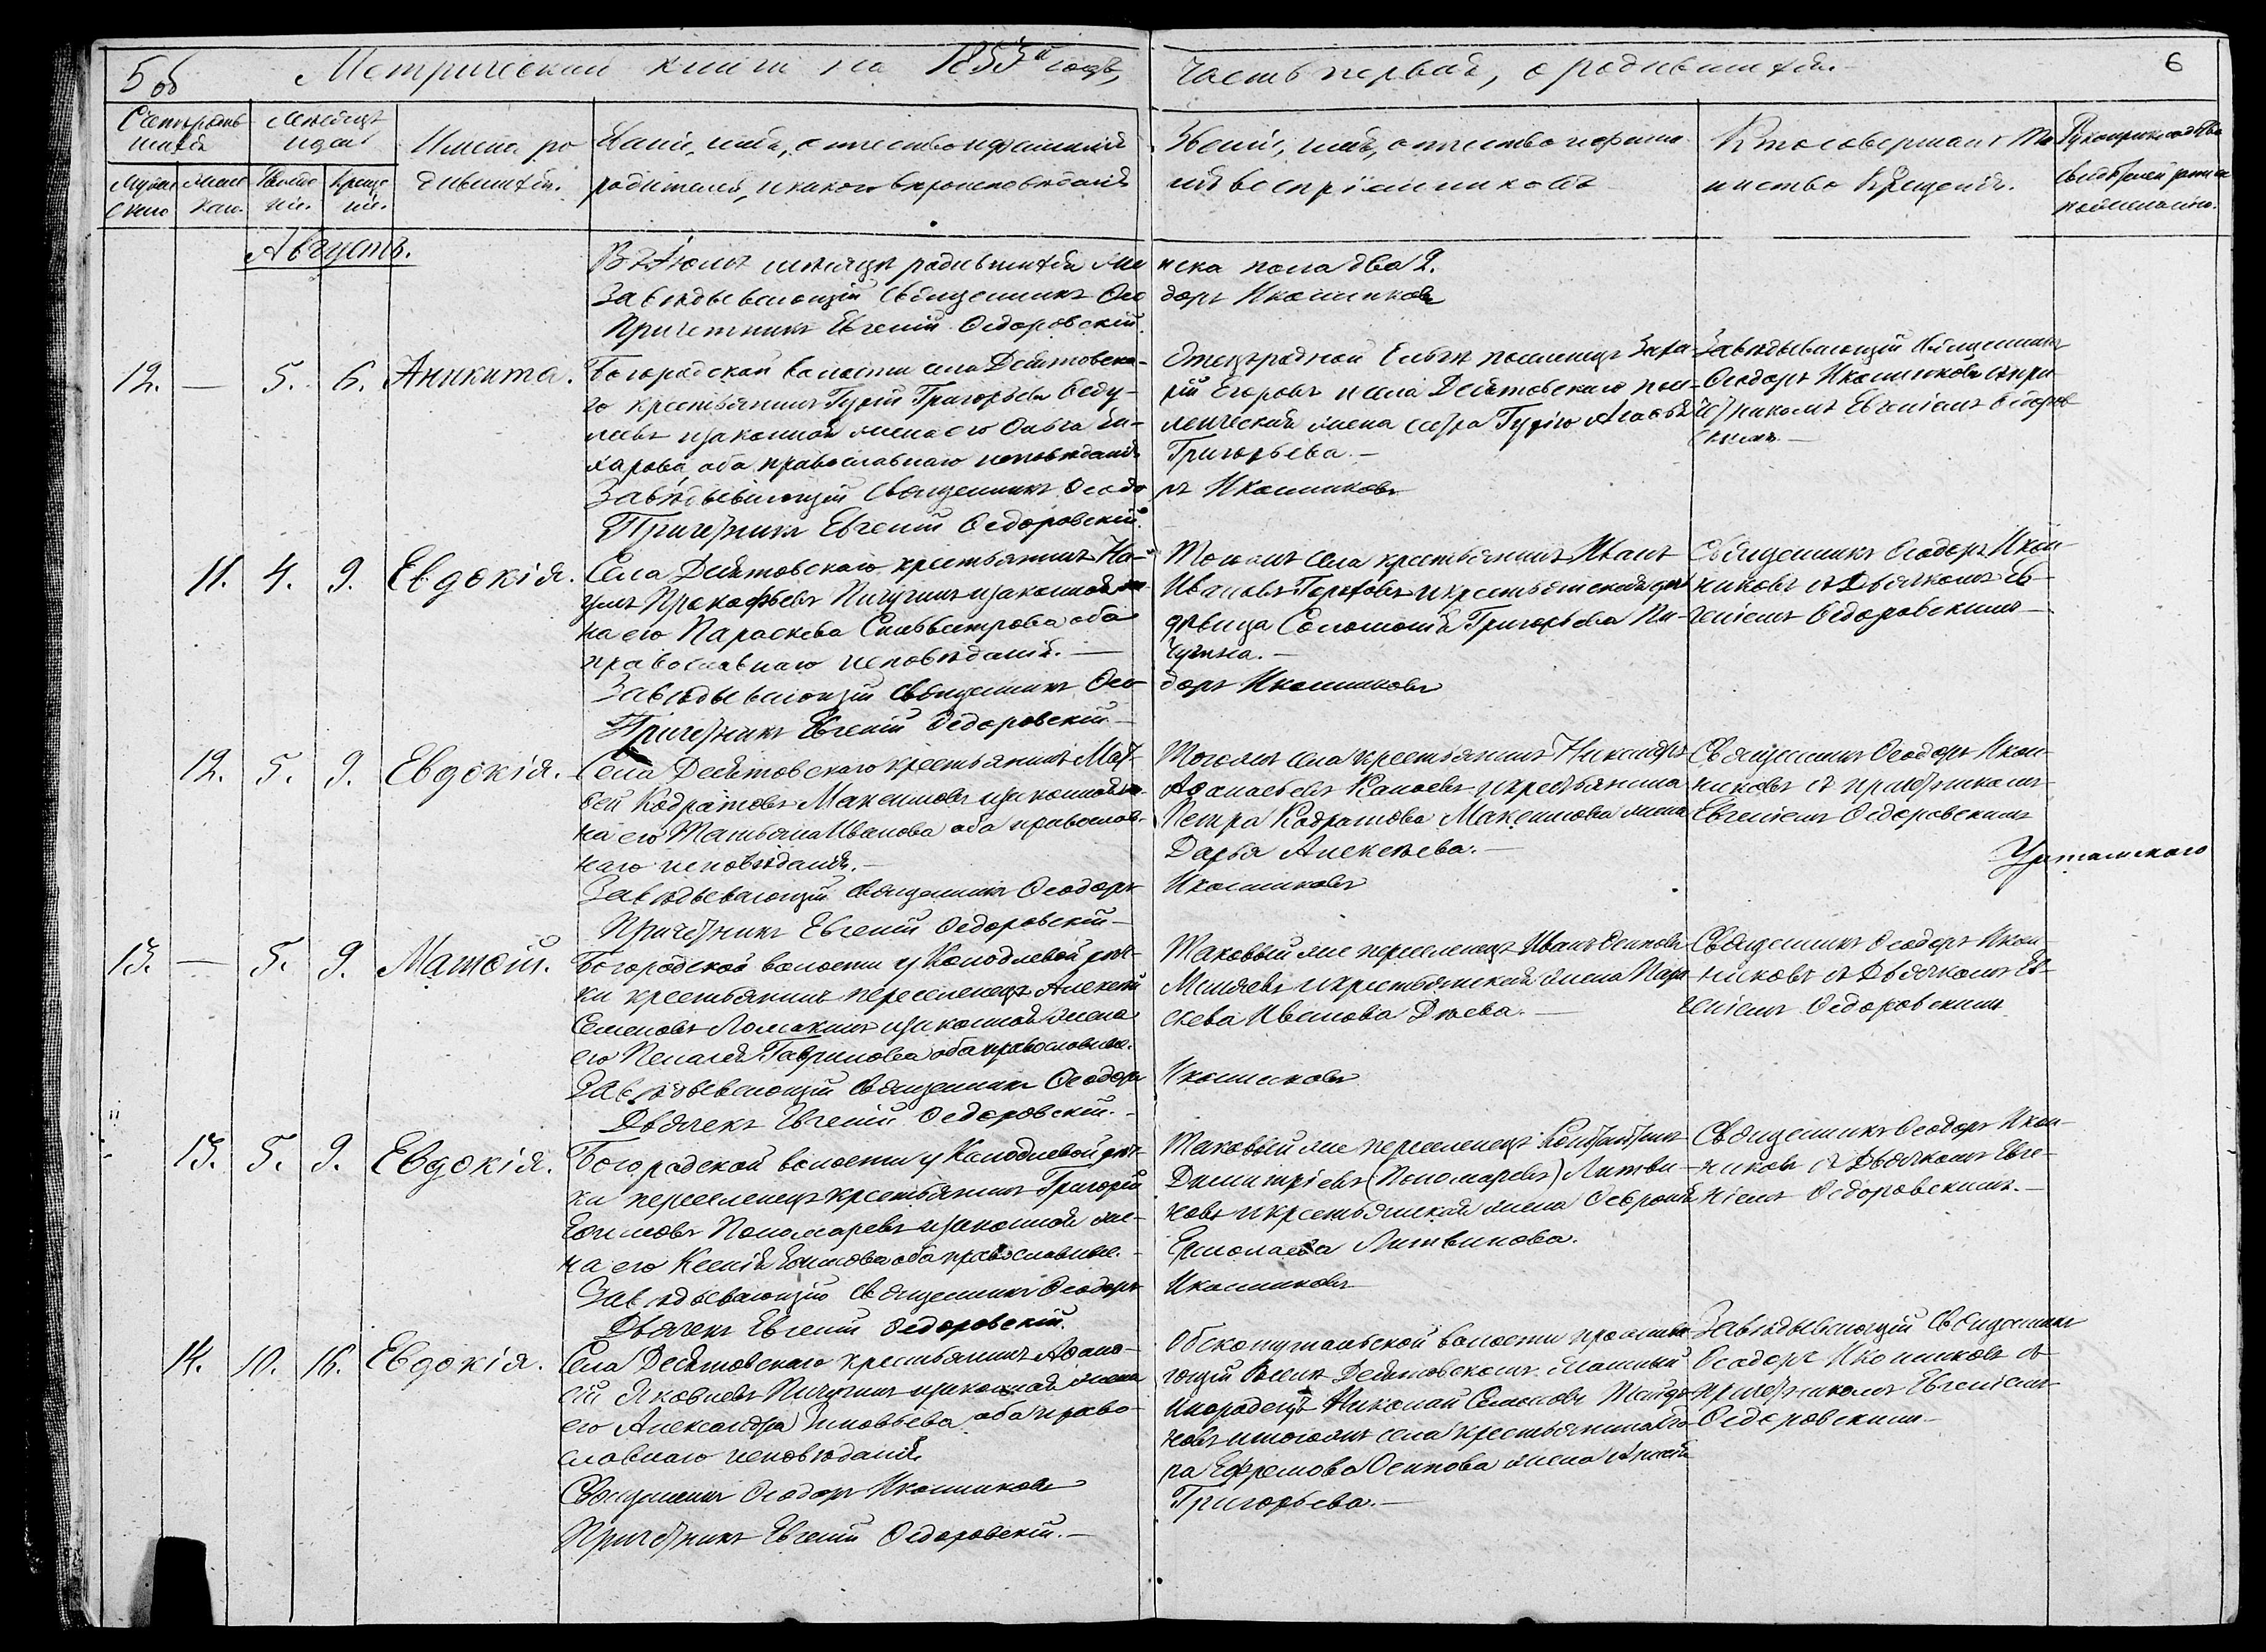 5 об
Метрической книги на 1853й годъ,
часть первая, о родившихся.
6
Счетъ родив
шихся
Мѣсяцъ
и день
Имена ро
дившихся.
Званіе, имя, отчество и фамилія
родителей, и какого вѣроисповѣданія
Званіе, имя, отчество и фами-
лія воспріемниковъ
Кто совершалъ та
инство крещенія.
Рукоприкладство
свидѣтелей записи
по желанію.
Муже
скаго
Жен
скаго
Рожде
нія.
Креще
нія.
Августъ.
Въ Іюлѣ мѣсяцѣ родившихся же
нска пола два 2.
Завѣдывающій Священникъ Ѳео
доръ Иконниковъ
Причетникъ Евгеній Ѳедоровскій
12. — 5. 6. Аникита.
Богородской волости села Десятовска-
го крестьянинъ Гурій Григорьевъ
и законная жена его Ольга За-
харова, оба православнаго исповѣданія
Завѣдывающій Священникъ Ѳеодо
ръ Иконниковъ
Причетникъ Евгеній Ѳедоровскій
поселенецъ Заха-
рій Егоровъ и села Десятовскаго посе-
ленческая жена сестра Гурія Агафія
Григорьева.—
Завѣдывающій Священникъ
Ѳеодоръ Иконниковъ съ при-
четникомъ Евгеніемъ Ѳедоров
скимъ.—
11. 4. 9. Евдокія.
Села Десятовскаго крестьянинъ На-
умъ Прокофьевъ Пичугинъ и законная же
на его Параскева Сильвестрова оба
православнаго исповѣданія.—
Завѣдывающій Священникъ Ѳео
доръ Иконниковъ
Причетникъ Евгеній Ѳедоровскій—
Тогожъ села крестьянинъ Иванъ
Ивановъ Гороховъ и крестьянская дочь
дѣвица Соломонія Григорьева Пи-
чугина.—
Священникъ Ѳеодоръ Икон-
никовъ съ Дьячкомъ Ев-
геніемъ Ѳедоровскимъ—
12. 5. 9. Евдокія.
Села Десятовскаго крестьянинъ Мат-
вей Кодратовъ Максимовъ и законная же
на его Татьяна Иванова оба православ-
наго исповѣданія.—
Завѣдывающій Священникъ Ѳеодоръ
Иконниковъ
Причетникъ Евгеній Ѳедоровскій—
Тогожъ села крестьянинъ Никандръ
Афанасьевъ и крестьянина
Петра Кодратова Максимова жена
Дарья Алексѣева.—
Священникъ Ѳеодоръ Икон-
никовъ съ причетникомъ
Евгеніемъ Ѳедоровскимъ
13. — 5. 9. Матѳій.
Богородской волости у Колодлевой рѣч-
ки крестьянинъ переселенецъ Алексѣй
Семеновъ Ломакинъ и законная жена
его Пелагея Гаврилова оба православные.
Завѣдывающій Священникъ Ѳеодоръ
Иконниковъ
Дьячекъ Евгеній Ѳедоровскій.—
Таковый же переселенецъ Иванъ Осиповъ
Миляевъ и крестьянская жена Пара
скева Иванова Дѣева.—
Священникъ Ѳеодоръ Икон
никовъ съ Дьячкомъ Ев-
геніемъ Ѳедоровскимъ
13. 5. 9. Евдокія.
Богородской волости у Колодлевой рѣч-
ки переселенецъ крестьянинъ Григорій
Ефимовъ Пономаревъ и законная же-
на его Ксенія Ефимова оба православные.—
Завѣдывающій Священникъ Ѳеодоръ
Иконниковъ
Дьячекъ Евгеній Ѳедоровскій.
Таковый же переселенецъ Константинъ
Димитріевъ (Пономаревъ) Литви-
новъ и крестьянская жена Ѳевронія
Ермолаева Литвинова.
Священникъ Ѳеодоръ Икон-
никовъ съ Дьячкомъ Евге-
ніемъ Ѳедоровскимъ.—
14. 10. 16. Евдокія.
Села Десятовскаго крестьянинъ Афана-
сій Яковлевъ Пичугинъ и законная жена
его Александра Зиновьева оба право-
славнаго исповѣданія
Священникъ Ѳеодоръ Иконниковъ
Причетникъ Евгеній Ѳедоровскій.—
волости прожива
ющій въ селѣ Десятовскомъ
инородецъ Николай Семеновъ
и тогожъ села крестьянина Его-
ра Ефремова Осипова жена
Григорьева.—
Завѣдывающій Священникъ
Ѳеодоръ Иконниковъ съ
причетникомъ Евгеніемъ
Ѳедоровскимъ—